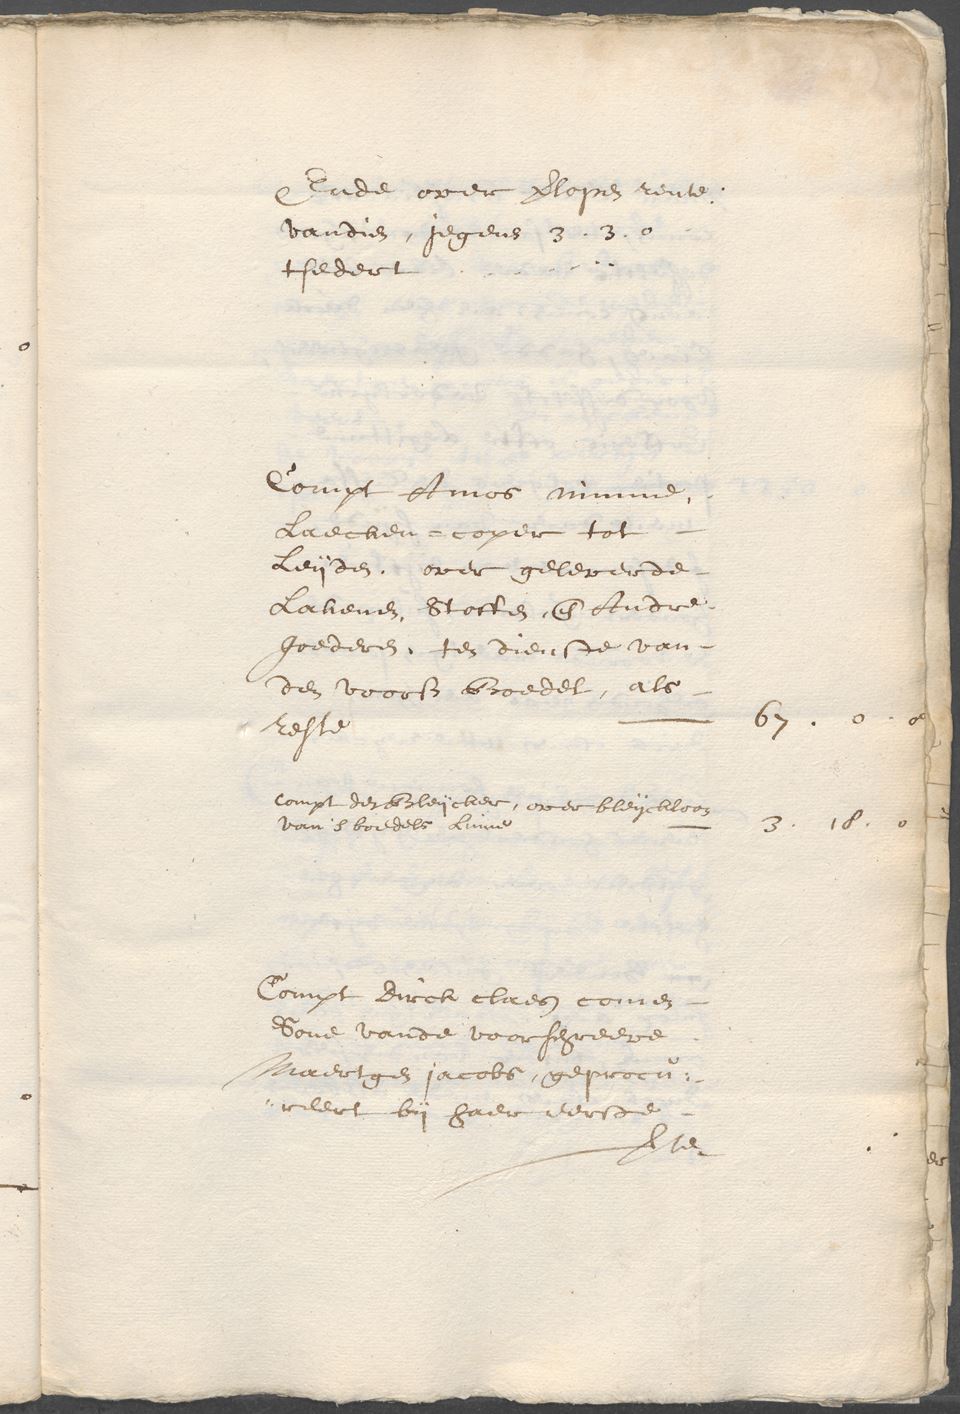 Ende over verlopen rente
vandien, jegens 3 . 3 . 0
tsedert
Compt Amos
Laecken=coper tot
Leijden. over geleverde
Lakenen, Stoffen, & Andre
goederen, ten dienste van
den voors. Boedel, als
reste 67 . 0 . 0
compt den Bleijcker, over bleijckloon
van 's boedels 3 . 18 . 0
Compt Dirck claesz comen
Sone vande voorschreven
Maertgen jacobs, geprocu
reert bij haer eerste